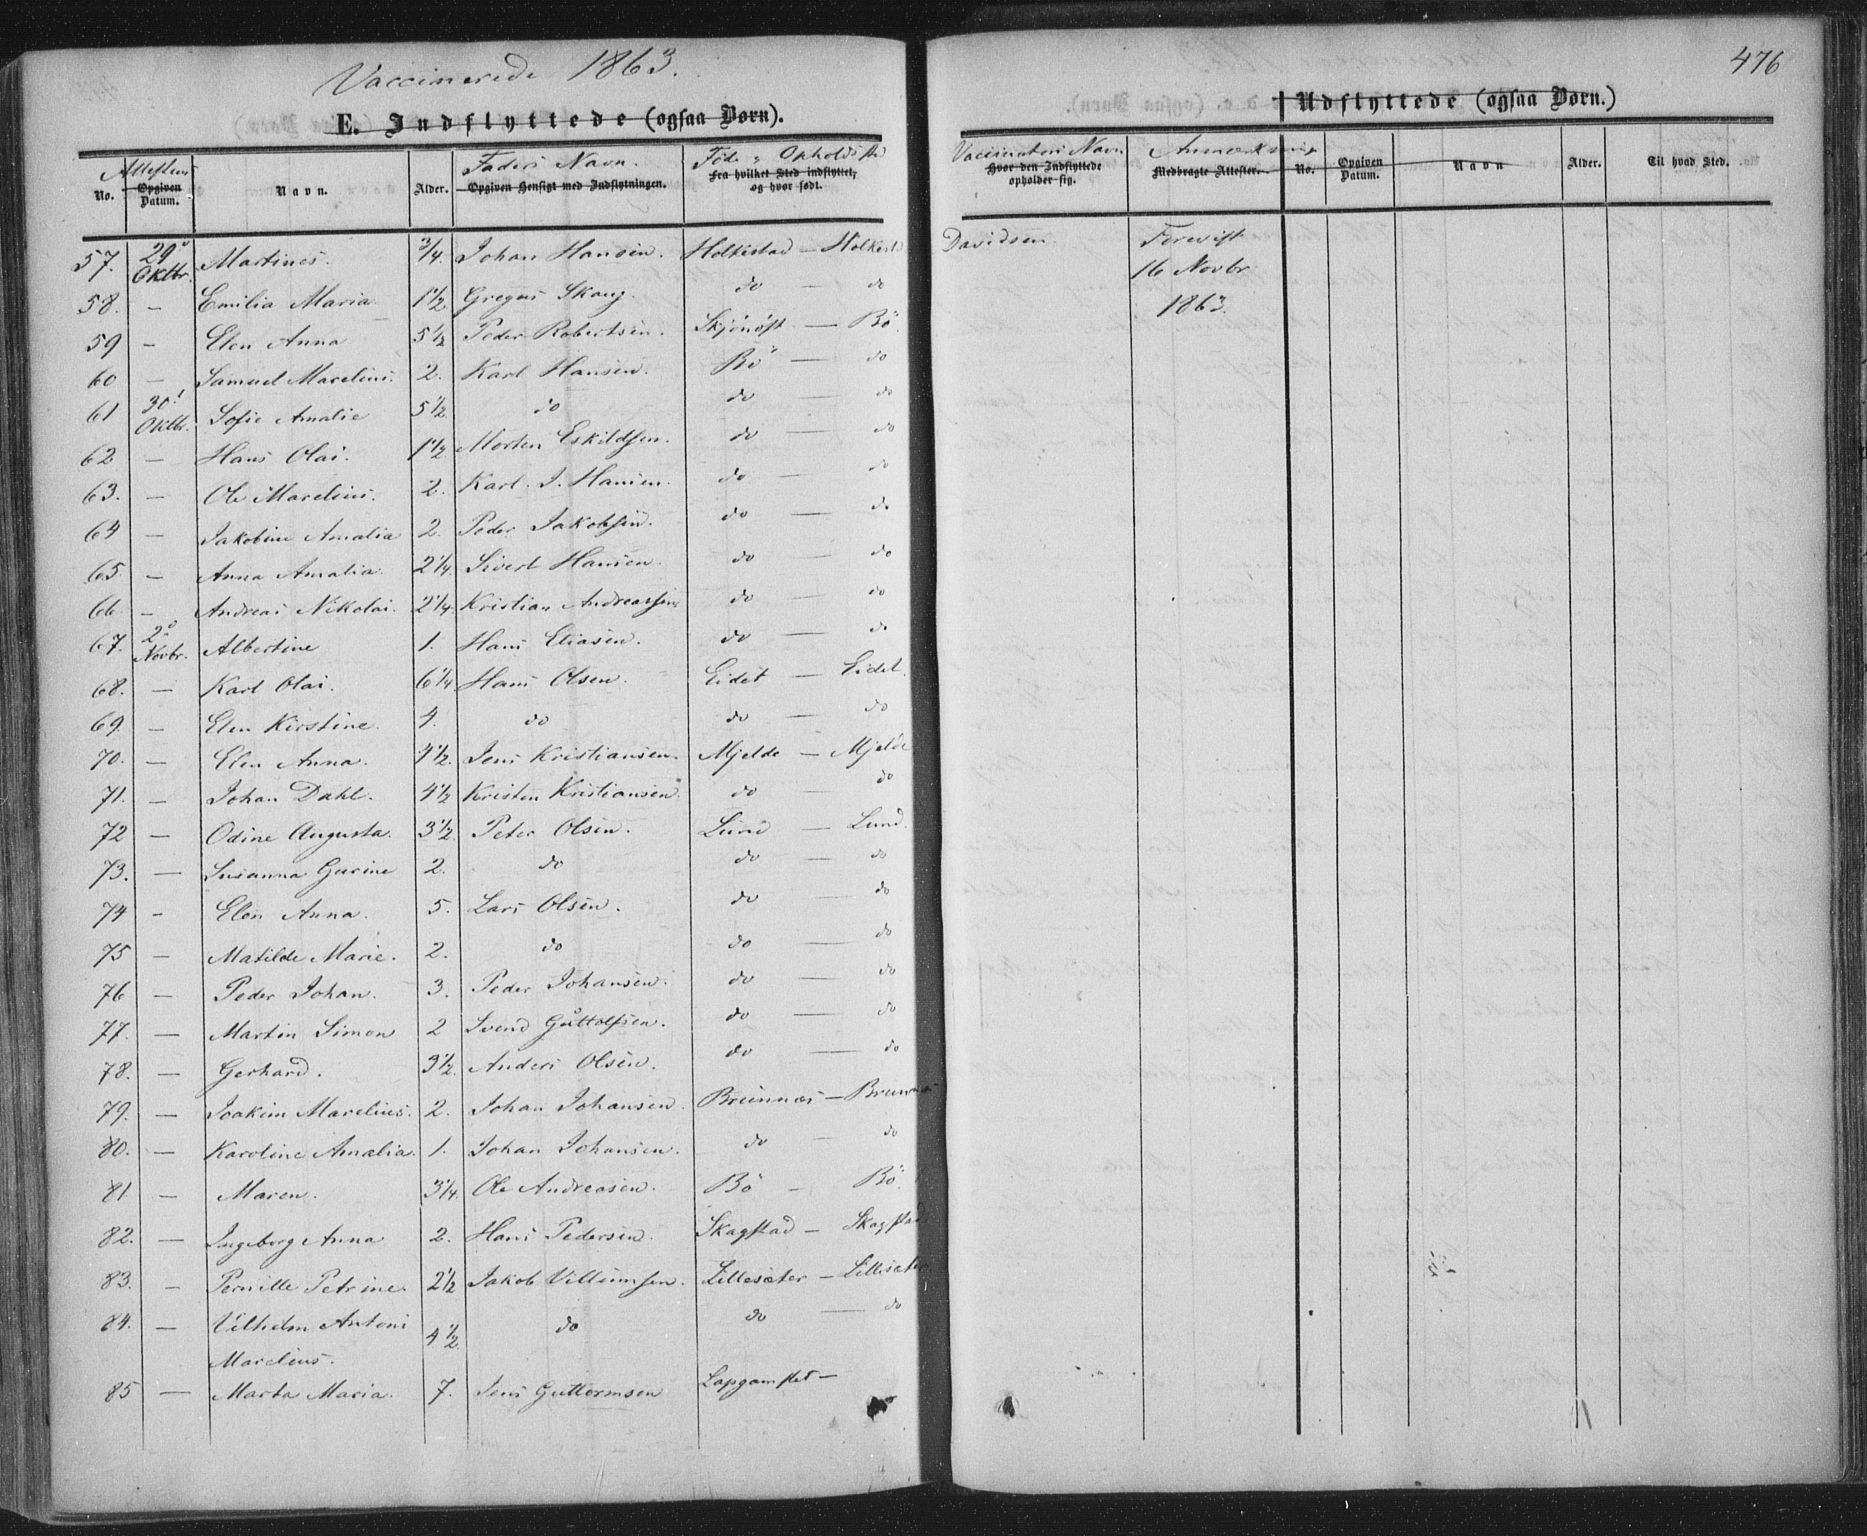 Vaccinerede 1863.
E. Indflyttede (ogsaa Børn).
No. | Attestens Opgiven Datum. | Navn. | Alder. | Faders Navn. Opgiven Hensigt med Indflytningen. | Føde- Opholdsst. Fra hvilket Sted indflyttet, og hvor født.
57. | 29 Oktbr. | Martines. | 3/4. | Johan Hansen. | Holkestad — Holkest
58. | — | Emilia Maria | 1 1/2. | Gregus Skaug. | do — do
59 | — | Elen Anna | 5 1/2 | Peder Robertsen. | — Bö.
60 | — | Samuel Marelius. | 2. | Karl Hansen. | Bö — do
61 | 30 Oktbr. | Sofie Amalie | 5 1/2. | do | do — do
62 | — | Hans Olai. | 1 1/2 | Morten Eskildsen. | do — do
63. | — | Ole Marelius. | 2. | Karl. J. Hansen. | do — do
64 | — | Jakobine Amalia | 2. | Peder Jakobsen. | do — do
65 | — | Anna Amalia. | 2 1/4. | Sivert Hansen. | do — do
66. | — | Andreas Nikolai. | 2 1/4. | Kristian Andreassen | do — do
67. | 2 Novbr. | Albertine | 1. | Hans Eliasen. | do — do
68. | — | Karl Olai. | 6 1/4 | Hans Olsen. | Eidet — Eidet.
69. | — | Elen Kirstine. | 4. | do | do — do
70. | — | Elen Anna. | 4 1/2. | Jens Kristiansen. | Mjelde — Mjelde
71. | — | Johan Dahl. | 4 1/2 | Kristen Kristiansen. | do — do
72 | — | Odine Augusta. | 3 1/2. | Peter Olsen. | Lund — Lund.
73. | — | Susanna Gurine | 2. | do | do — do
74 | — | Elen Anna. | 5. | Lars Olsen. | do — do
75 | — | Matilde Marie. | 2. | do | do — do
76 | — | Peder Johan. | 3. | Peder Johansen. | do — do
77. | — | Martin Simon | 2 | Svend Guttolfsen. | do — do
78. | — | Gerhard. | 3 1/2. | Anders Olsen. | do — do
79. | — | Joakim Marelius. | 2. | Johan Johansen. | Brunnæs — Brunnæs
80. | — | Karoline Amalia. | 1. | Johan Johansen. | do — do
81 | — | Maren. | 3 1/4. | Ole Andreasen. | Bö — Bö.
82. | — | Ingeborg Anna | 2. | Hans Pedersen. | Skagstad — Skagstad
83. | — | Pernille Petrine. | 2 1/2 | Jakob Villumsen. | Lillesæter — Lillesæter
84. | — | Vilhelm Antoni | 4 1/2. | do | do — do
Marelius.
85 | — | Marta Maria. | 7. | Jens Guttormsen | —
476
Udflyttede (ogsaa Børn.)
Vaccinatørs Navn Hvor den Indflyttede opholder sig. | Anmærkning Medbragte Attester. | No. | Opgiven Datum. | Navn | Alder. | Til hvad Sted.
Davidsen | Forevist
16 Novbr
1863.